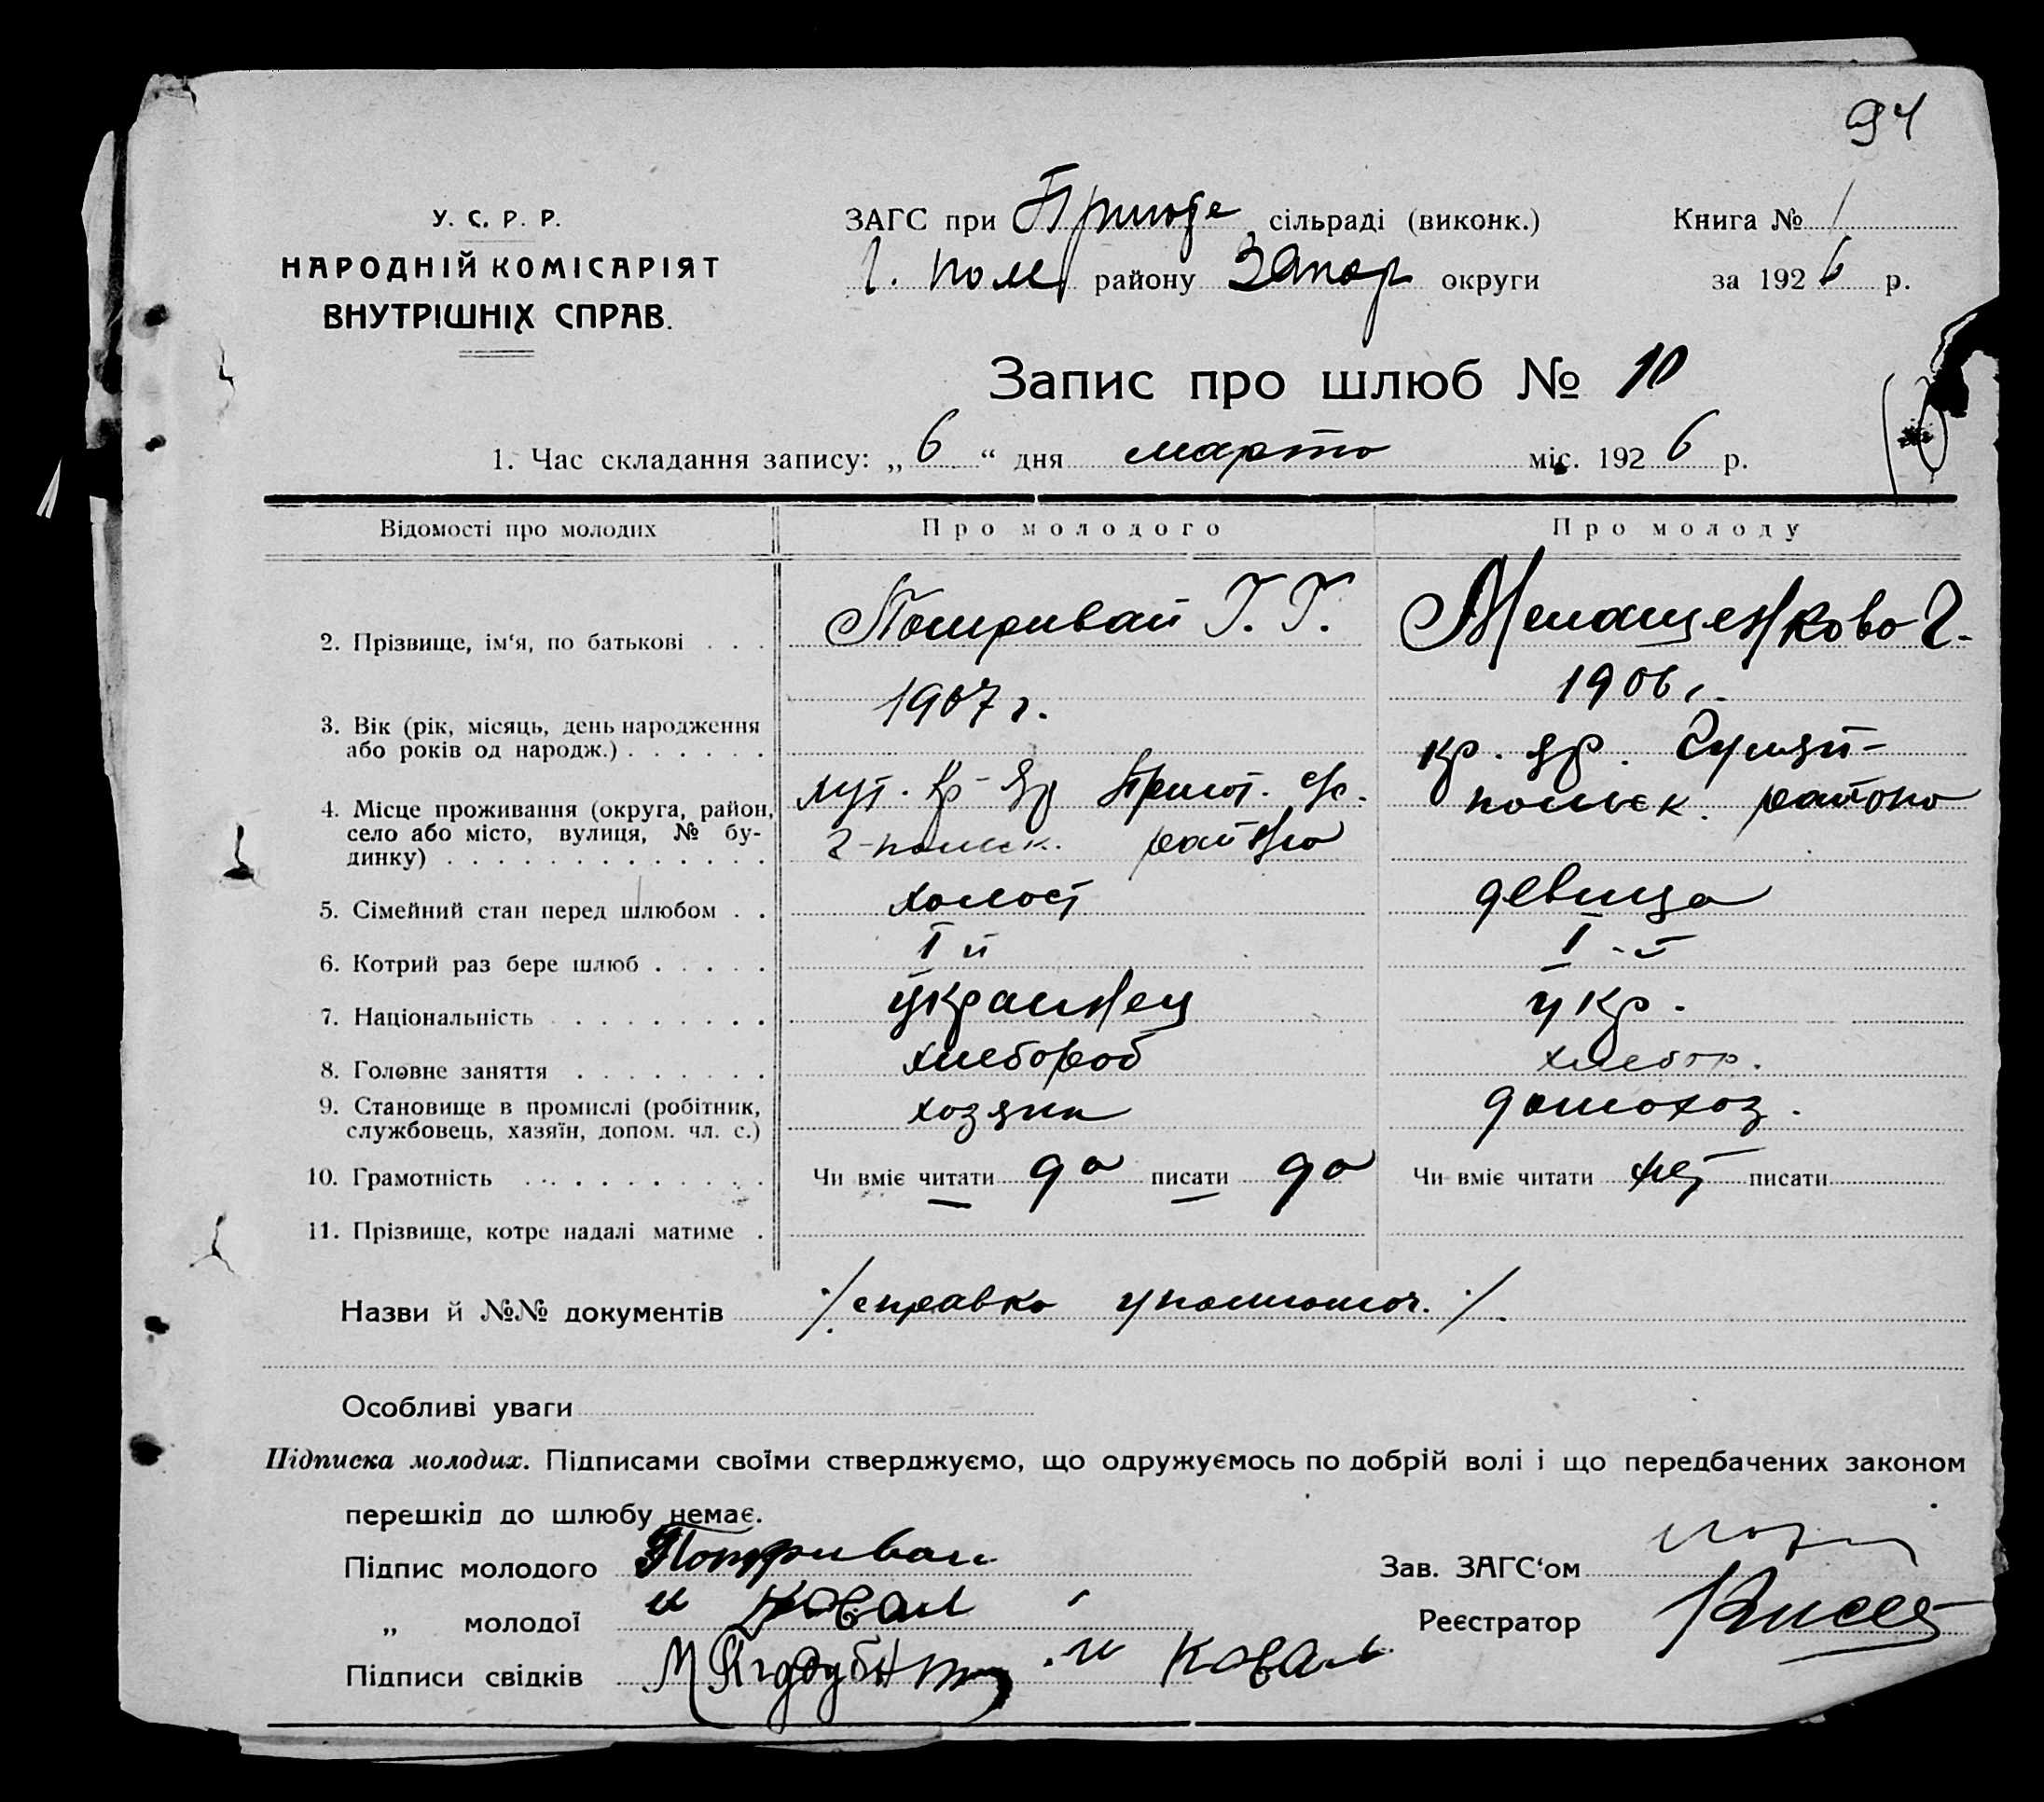 94
У. С. Р. Р.
НАРОДНІЙ КОМІСАРІЯТ
ВНУТРІШНІХ СПРАВ.
ЗАГС при сільраді (виконк.)
Г. Пол району Запор округи
Книга № 1
за 1926 р.
Запис про шлюб № 10
1. Час складання запису: „ 6 “ дня марта міс. 1926 р.
Відомості про молодих Про молодого Про молоду
2. Прізвище, ім‘я, по батькові . . . Г. Г.
3. Вік (рік, місяць, день народження 1907 г. 1906 г.
або років од народж.) . . . . . .
4. Місце проживання (округа, район, кр. яр. Гуляй-
село або місто, вулиця, № бу- польск. района
динку) . . . . . . . . . . . . . района
5. Сімейний стан перед шлюбом . . холост девица
6. Котрий раз бере шлюб . . . . . I й I-й
7. Національність . . . . . . . . . украинец укр.
8. Головне заняття . . . . . . . . хлебороб хлебор.
9. Становище в промислі (робітник, хозяин домохоз.
службовець, хазяїн, допом. чл. с.)
10. Грамотність . . . . . . . . . . Чи вміє читати да писати да Чи вміє читати нет писати
11. Прізвище, котре надалі матиме .
Назви й №№ документів справка уполномоч.
Особливі уваги
Підписка молодих. Підписами своїми стверджуємо, що одружуємось по добрій волі і що передбачених законом
перешкід до шлюбу немає.
Підпис молодого
„ молодої и Ковал
Підписи свідків и Коваль
Зав. ЗАГС‘ом
Реєстратор